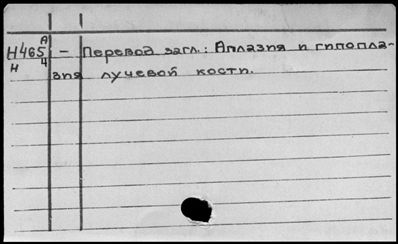 А
Н465 – Перевод загл.: Аплазия и гипопла-
Н 4 зия лучевой кости.